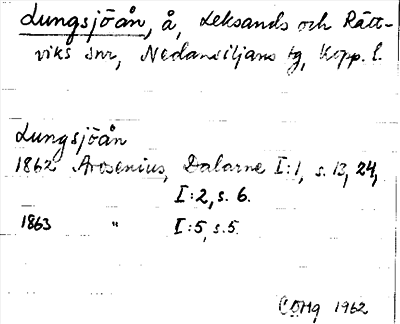 Lungsjöån, å, Leksands och Rätt-
viks snr, Nedansiljans tg, Kopp. l.
Lungsjöån
1862 Arosenius, Dalarne I:1, s. 13, 24,
I:2, s. 6.
1863 " I:5, s. 5.
1962